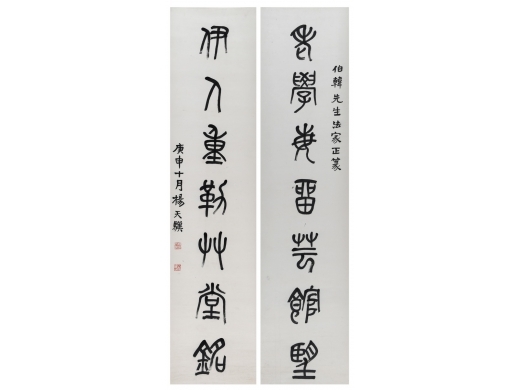 伯韓先生法家正篆
老學每留芸館朢
伊人重勒艸堂銘
庚申十月楊天驥